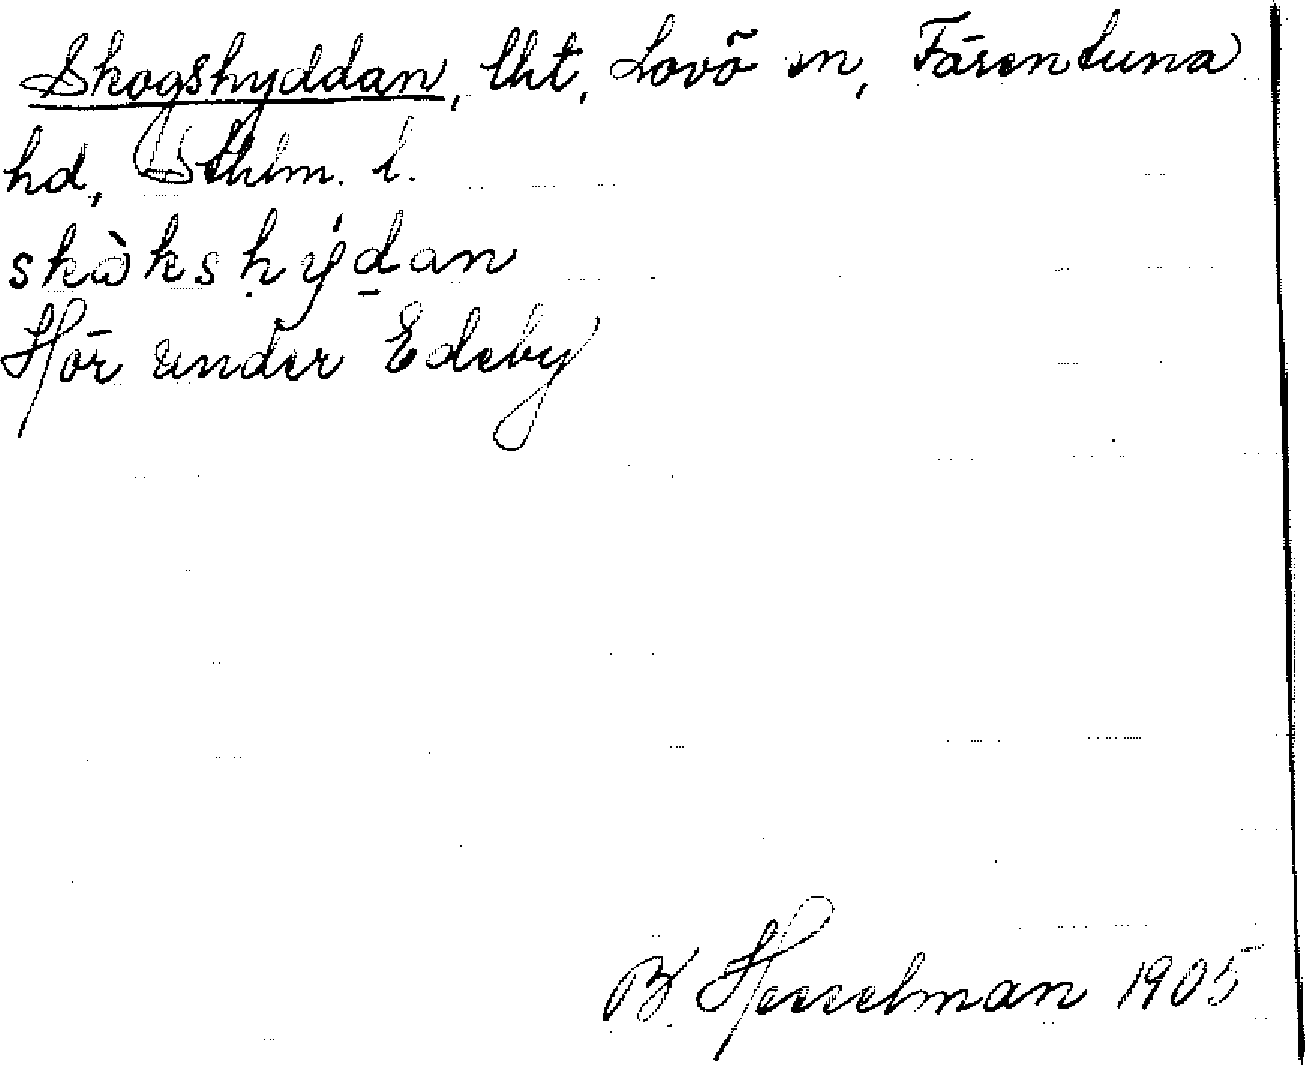 Skogshyddan, lht, Lovö sn, Färentuna
hd, Sthlm. l.
skò̀kshẏ́d̠an
Hör under Edeby
B. Hesselman 1905